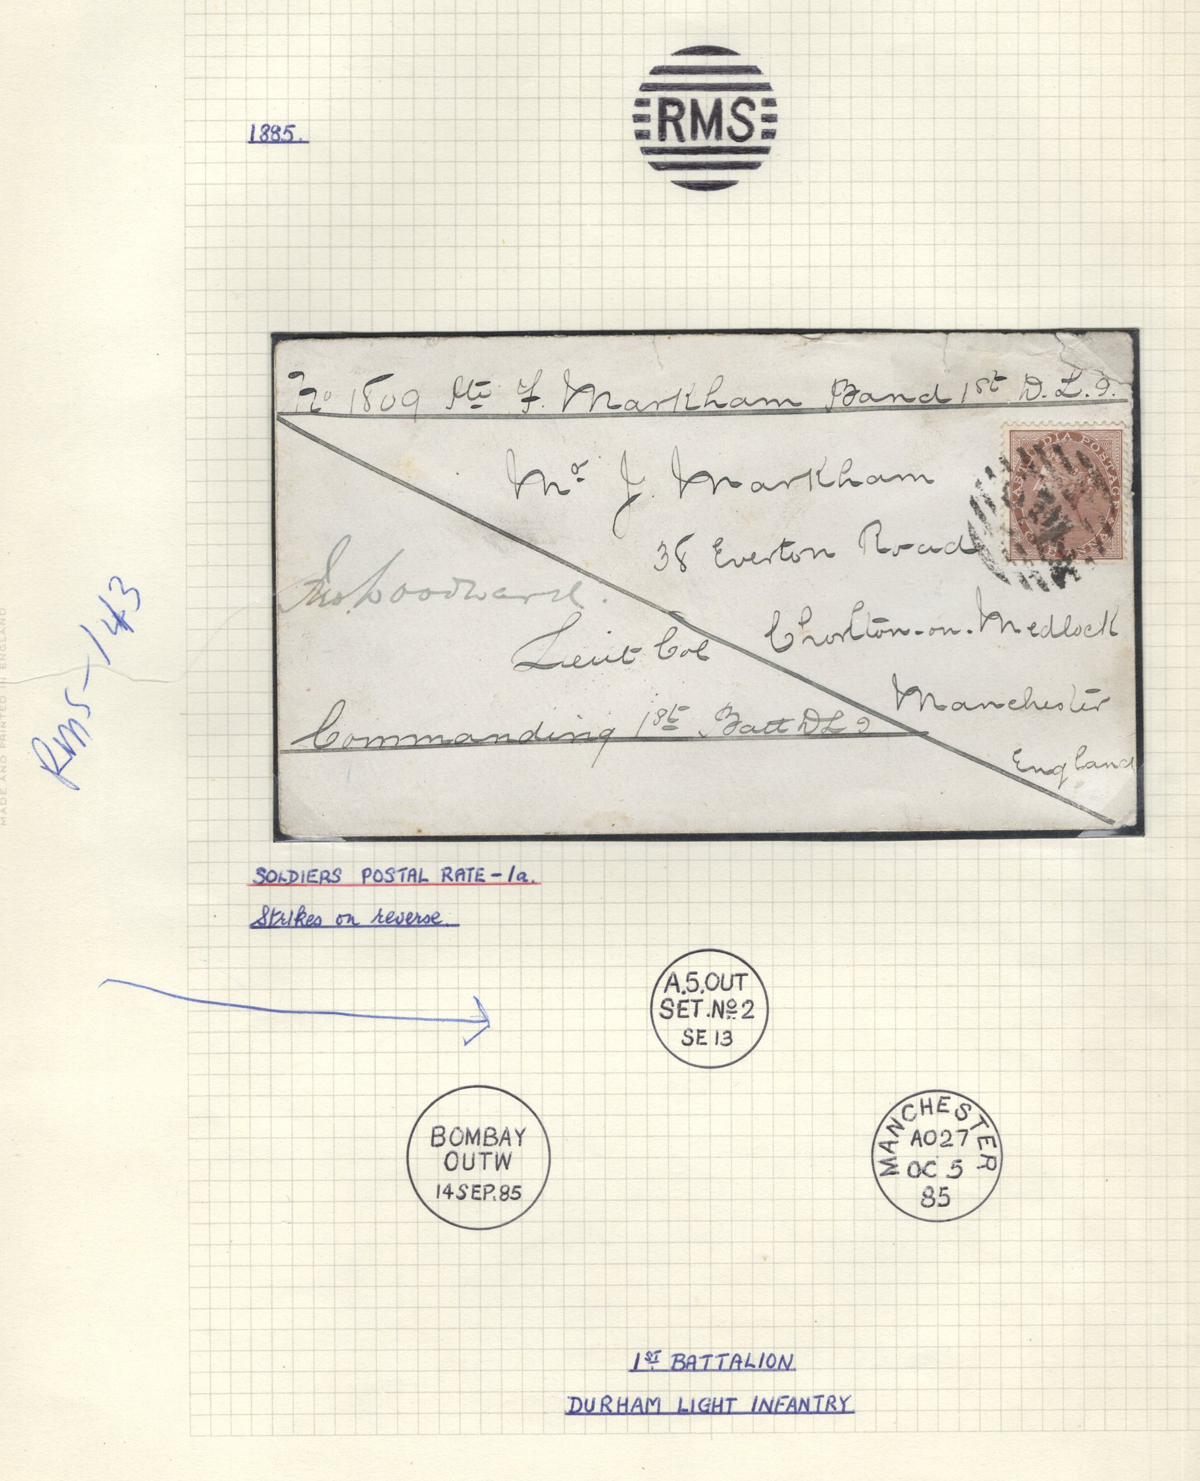 1885.
RMS
No 1809 Pte F. Markham Band 1st D.L.I.
Mr J. Markham
38 Everton Road
Chorlton-on-Medlock
Manchester
England
EAST INDIA POSTAGE
ONE ANNA
Woodward.
Lieut Col
Commanding 1st Batt DLI
RMS-143
MADE AND PRINTED IN ENGLAND
SOLDIERS POSTAL RATE-1a.
Strikes on reverse.
A.5.OUT
SET.No.2
SE 13
BOMBAY
OUTW
14SEP.85
MANCHESTER
AO27
OC 5
85
1ST BATTALION
DURHAM LIGHT INFANTRY